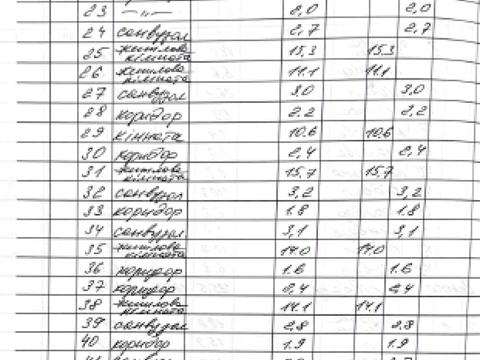 23 —"— 2,0 2,0
24 санвузол 2,7 2,7
25 житлова кімната 15,3 15,3
26 житлова кімната 11.1 11.1
27 санвузол 3,0 3,0
28 коридор 2.2 2,2
29 кімната 10.6 10.6
30 коридор 2,4 2,4
31 житлова кімната 15.7 15.7
32 санвузол 3,2 3,2
33 коридор 1.8 1.8
34 санвузол 3,1 3,1
35 житлова кімната 14.0 14.0
36 коридор 1.6 1.6
37 коридор 2,4 2,4
38 житлова кімната 14.1 14.1
39 санвузол 2,8 2.8
40 коридор 1.9 1.9